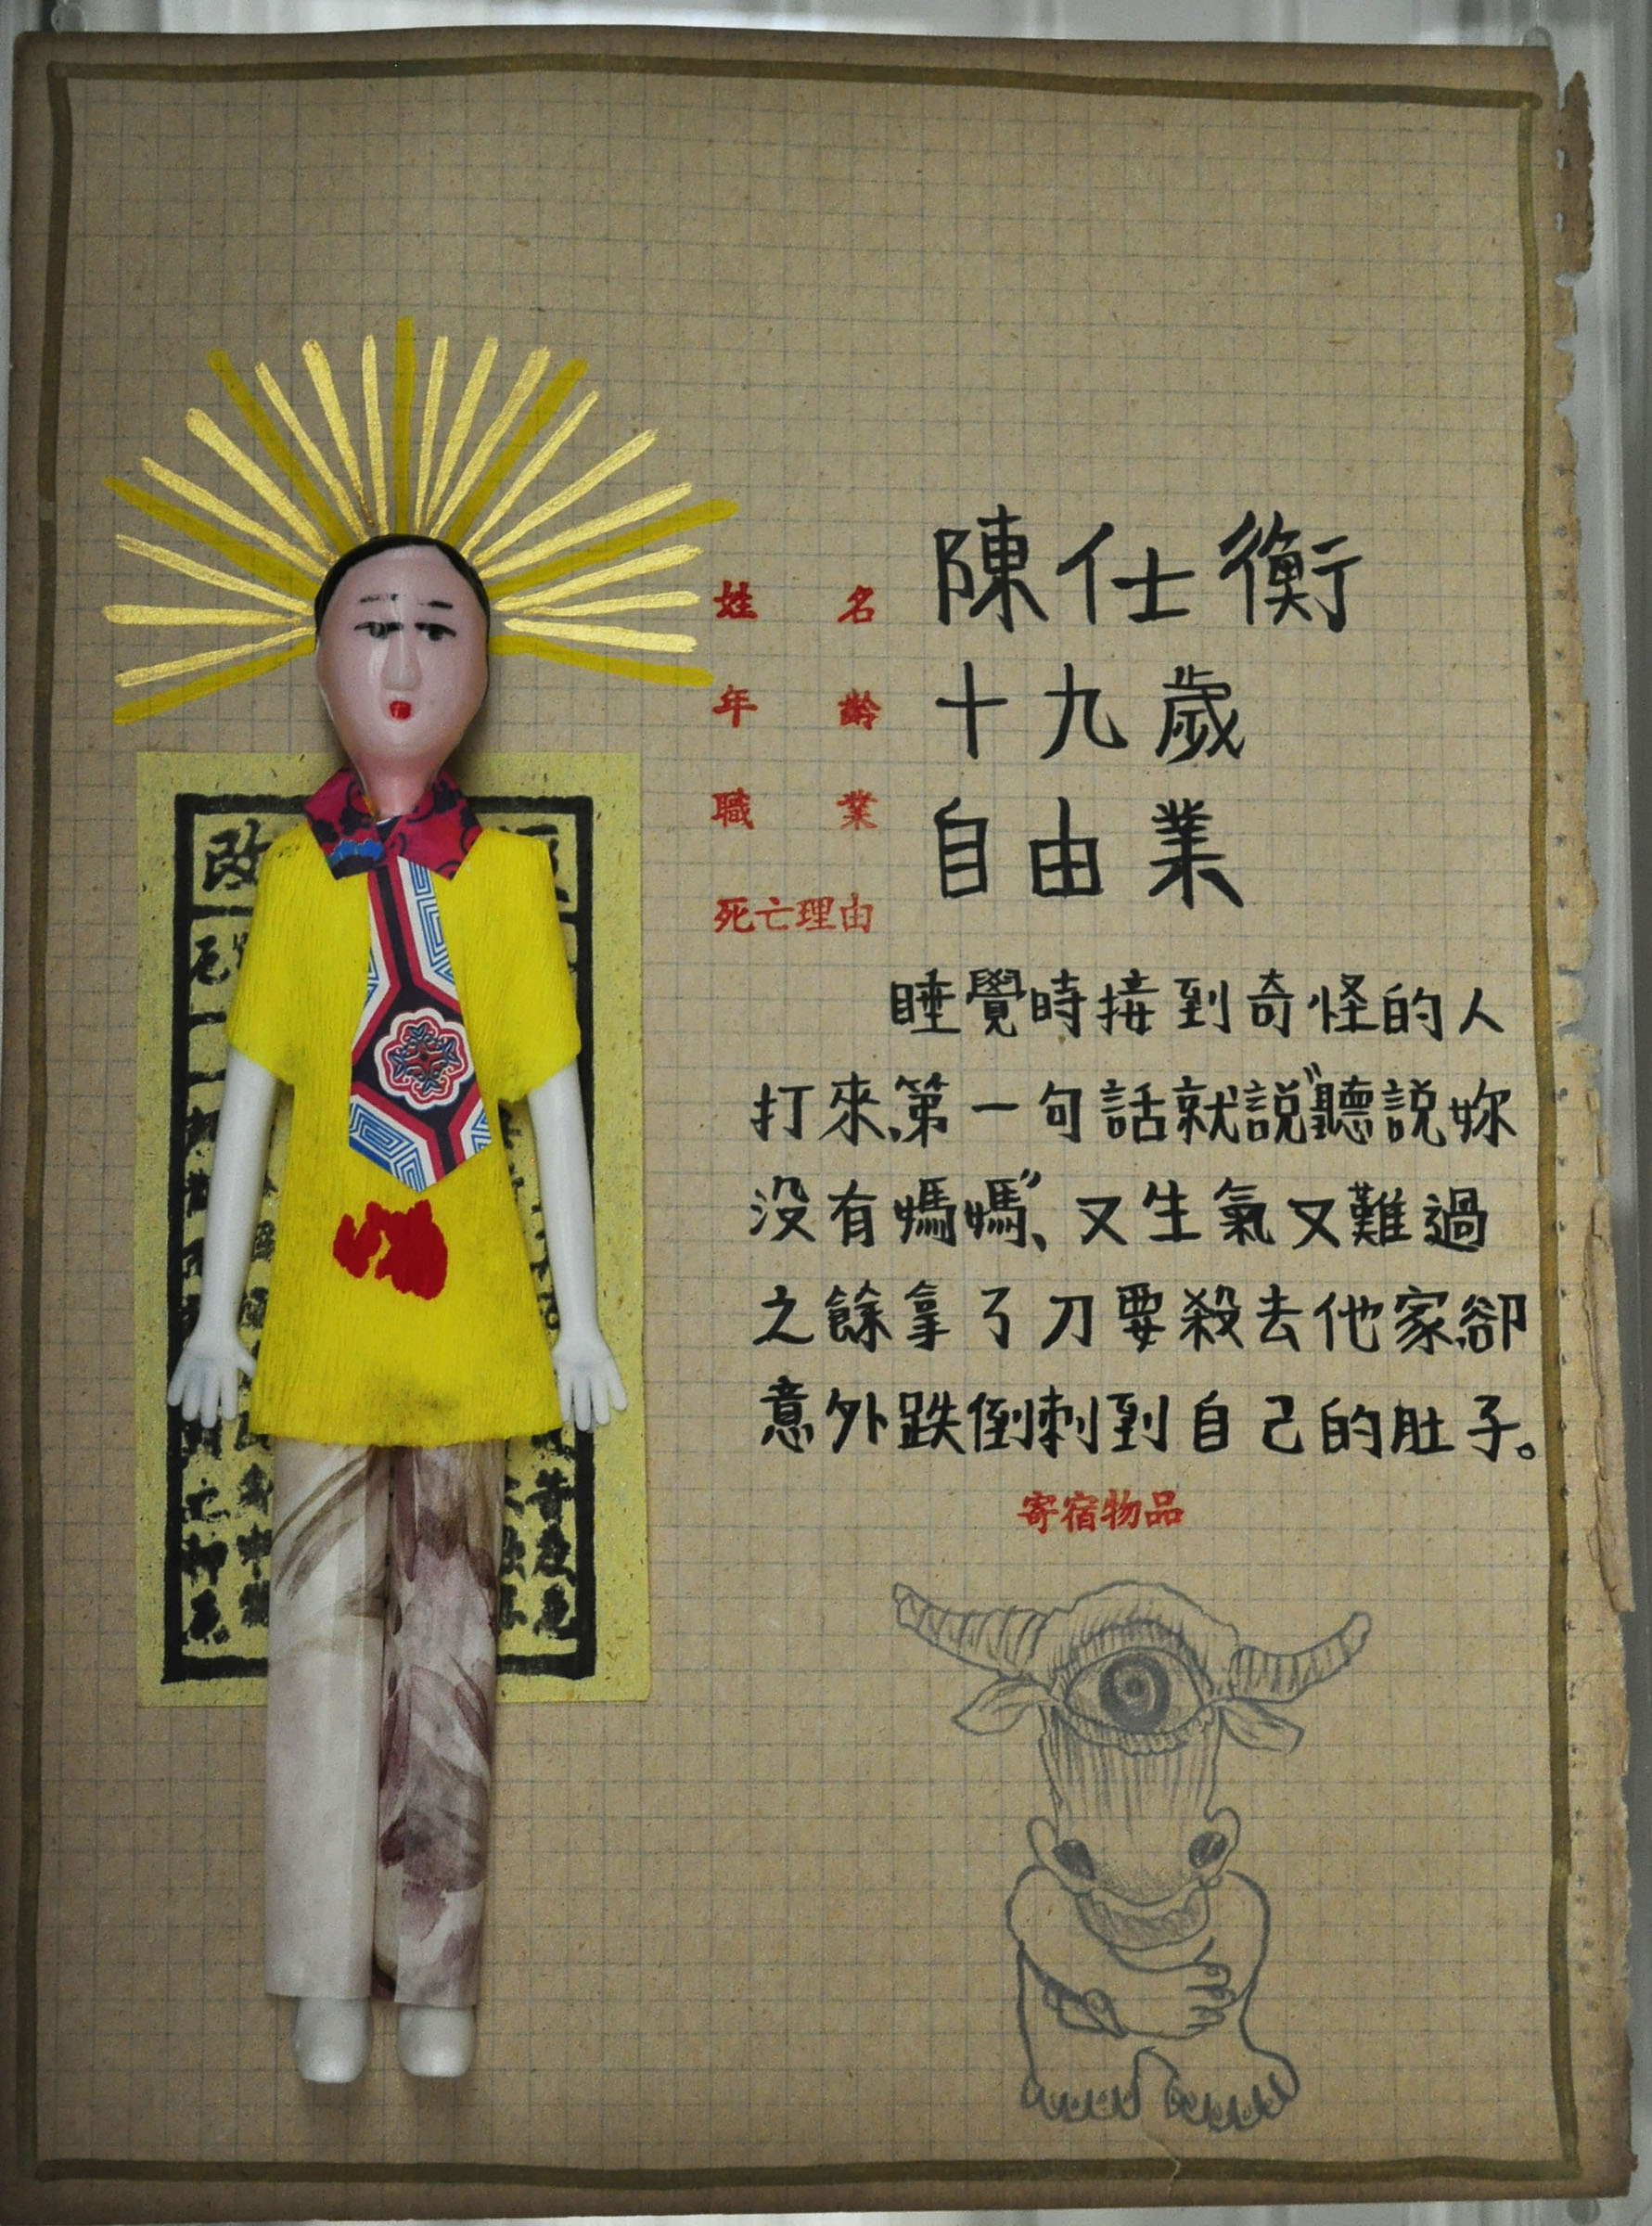 姓名 陳仕衡
年齡 十九歲
職業 自由業
死亡理由
睡覺時接到奇怪的人
打來、第一句話就說"聽說妳
沒有媽媽"、又生氣又難過
之餘拿了刀要殺去他家、卻
意外跌倒刺到自己的肚子。
寄宿物品
改